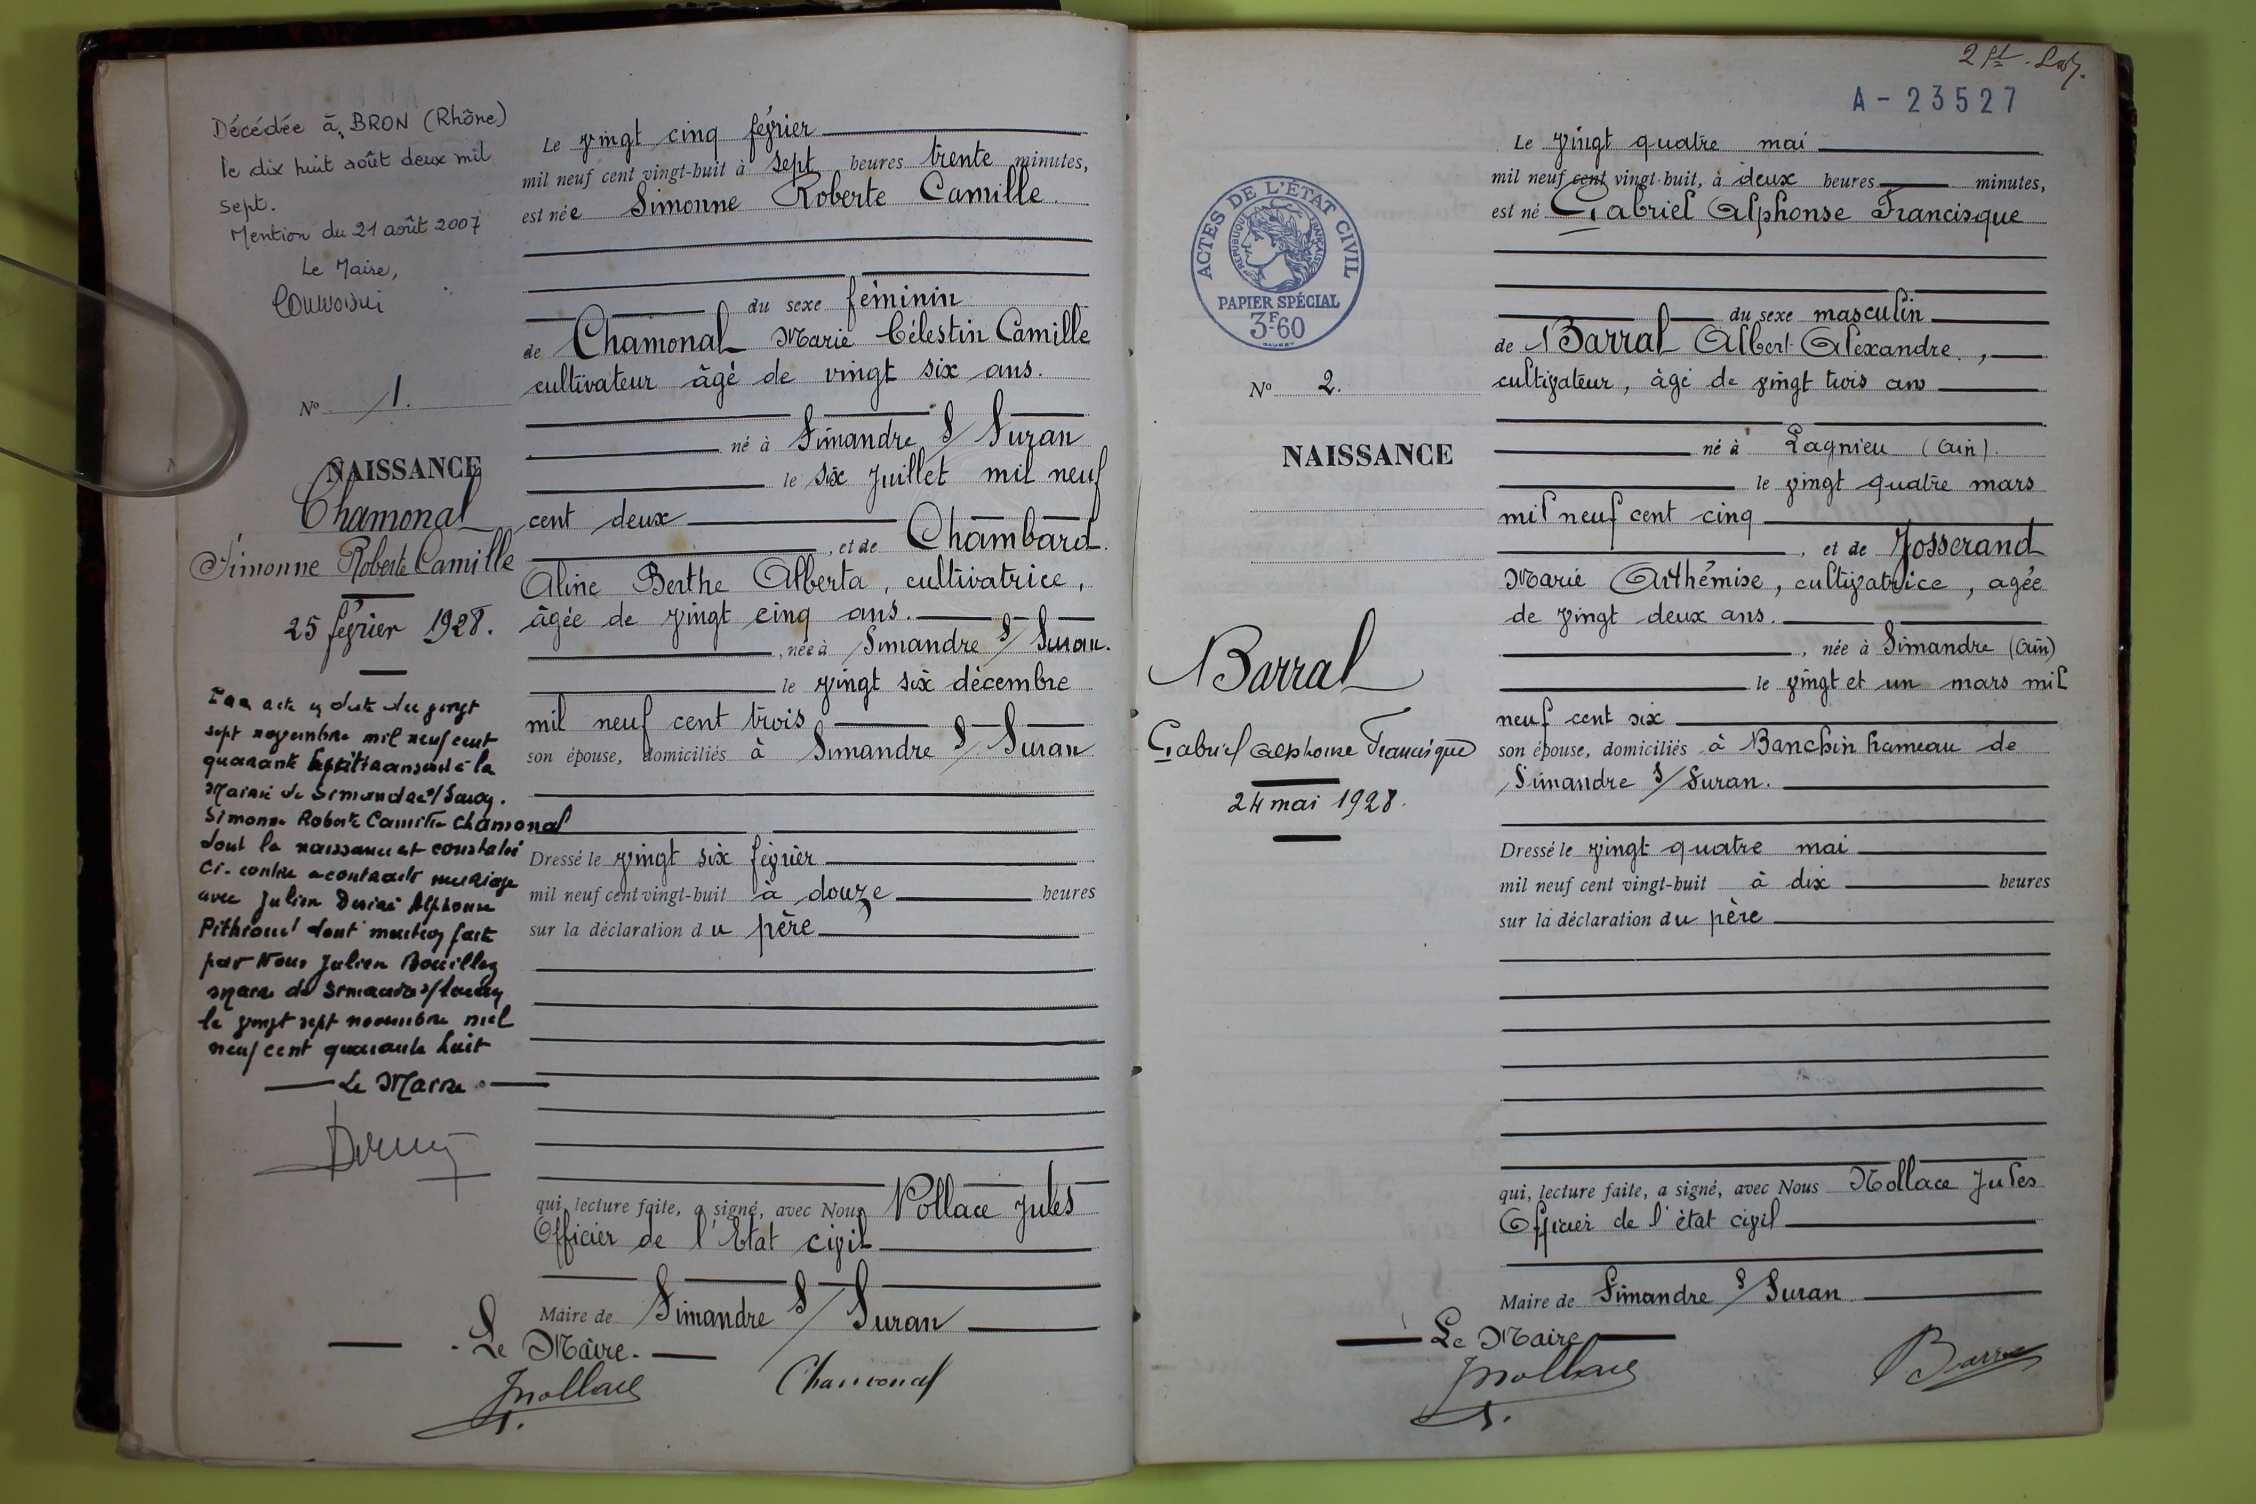 Décédée à BRON (Rhône)
le dix huit août deux mil
sept.
Mention du 21 août 2007
Le Maire,
N° 1.
NAISSANCE
Chamonal
Simonne Roberte Camille
25 février 1928.
Par acte en date du vingt
sept novembre mil neuf cent
quarante huit à la
Mairie de Simandre s/ Suran.
Simonne Roberte Camille Chamonal
dont la naissance est constatée
ci-contre a contracté mariage
avec Julien Désiré Alphonse
Pithioud dont mention faite
par Nous Julien Bouilloz
maire de Simandre s/ Suran
le vingt sept novembre mil
neuf cent quarante huit
Le Maire
Le vingt cinq février
mil neuf cent vingt-huit à sept heures trente minutes,
est née Simonne Roberte Camille
du sexe féminin
de Chamonal Marie Célestin Camille
cultivateur âgé de vingt six ans.
né à Simandre s/ Suran
le six Juillet mil neuf
cent deux
, et de Chambard
Aline Berthe Alberta, cultivatrice,
âgée de vingt cinq ans.
, née à Simandre s/ Suran.
le vingt six décembre
mil neuf cent trois
son épouse, domiciliés à Simandre s/ Suran
Dressé le vingt six février
mil neuf cent vingt-huit à douze heures
sur la déclaration du père
qui, lecture faite, a signé, avec Nous Nollace Jules
Officier de l'Etat civil
Maire de Simandre s/ Suran
Le Maire.
JNollace
Chamonal
2 pt.
A - 23527
ACTES DE L'ÉTAT CIVIL
RÉPUBLIQUE FRANÇAISE
PAPIER SPÉCIAL
3F-60
N° 2.
NAISSANCE
Barral
Gabriel Alphonse Francisque
24 mai 1928.
Le vingt quatre mai
mil neuf cent vingt-huit, à deux heures minutes,
est né Gabriel Alphonse Francisque
du sexe masculin
de Barral Albert Alexandre,
cultivateur, âgé de vingt trois ans
né à Lagnieu (Ain).
le vingt quatre mars
mil neuf cent cinq
, et de Josserand
Marie Arthémise, cultivatrice, agée
de vingt deux ans.
, née à Simandre (Ain)
le vingt et un mars mil
neuf cent six
son épouse, domiciliés à Banchin hameau de
Simandre s/ Suran.
Dressé le vingt quatre mai
mil neuf cent vingt-huit à dix heures
sur la déclaration du père
qui, lecture faite, a signé, avec Nous Nollace Jules
Officier de l'état civil
Maire de Simandre s/ Suran
Le Maire
JNollace
Barral